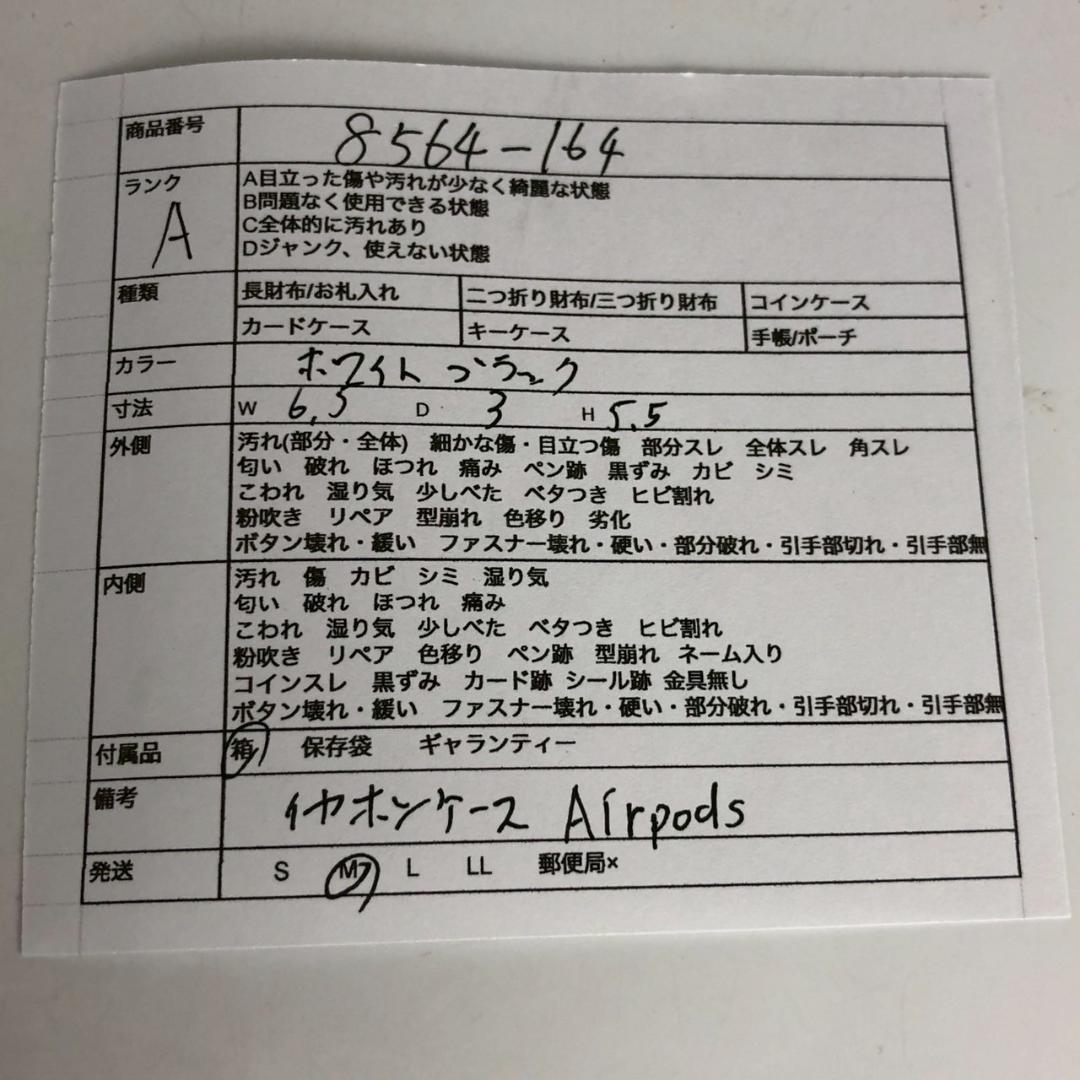 商品番号 8564-164
ランク A
A目立った傷や汚れが少なく綺麗な状態
B問題なく使用できる状態
C全体的に汚れあり
Dジャンク、使えない状態
種類 長財布/お札入れ 二つ折り財布/三つ折り財布 コインケース
カードケース キーケース 手帳/ポーチ
カラー ホワイト ブラック
寸法 W 6,5 D 3 H 5.5
外側 汚れ(部分・全体) 細かな傷・目立つ傷 部分スレ 全体スレ 角スレ
匂い 破れ ほつれ 痛み ペン跡 黒ずみ カビ シミ
こわれ 湿り気 少しべた ベタつき ヒビ割れ
粉吹き リペア 型崩れ 色移り 劣化
ボタン壊れ・緩い ファスナー壊れ・硬い・部分破れ・引手部切れ・引手部無
内側 汚れ 傷 カビ シミ 湿り気
匂い 破れ ほつれ 痛み
こわれ 湿り気 少しべた ベタつき ヒビ割れ
粉吹き リペア 色移り ペン跡 型崩れ ネーム入り
コインスレ 黒ずみ カード跡 シール跡 金具無し
ボタン壊れ・緩い ファスナー壊れ・硬い・部分破れ・引手部切れ・引手部無
付属品 箱 保存袋 ギャランティー
備考 イヤホンケース Airpods
発送 S M L LL 郵便局×